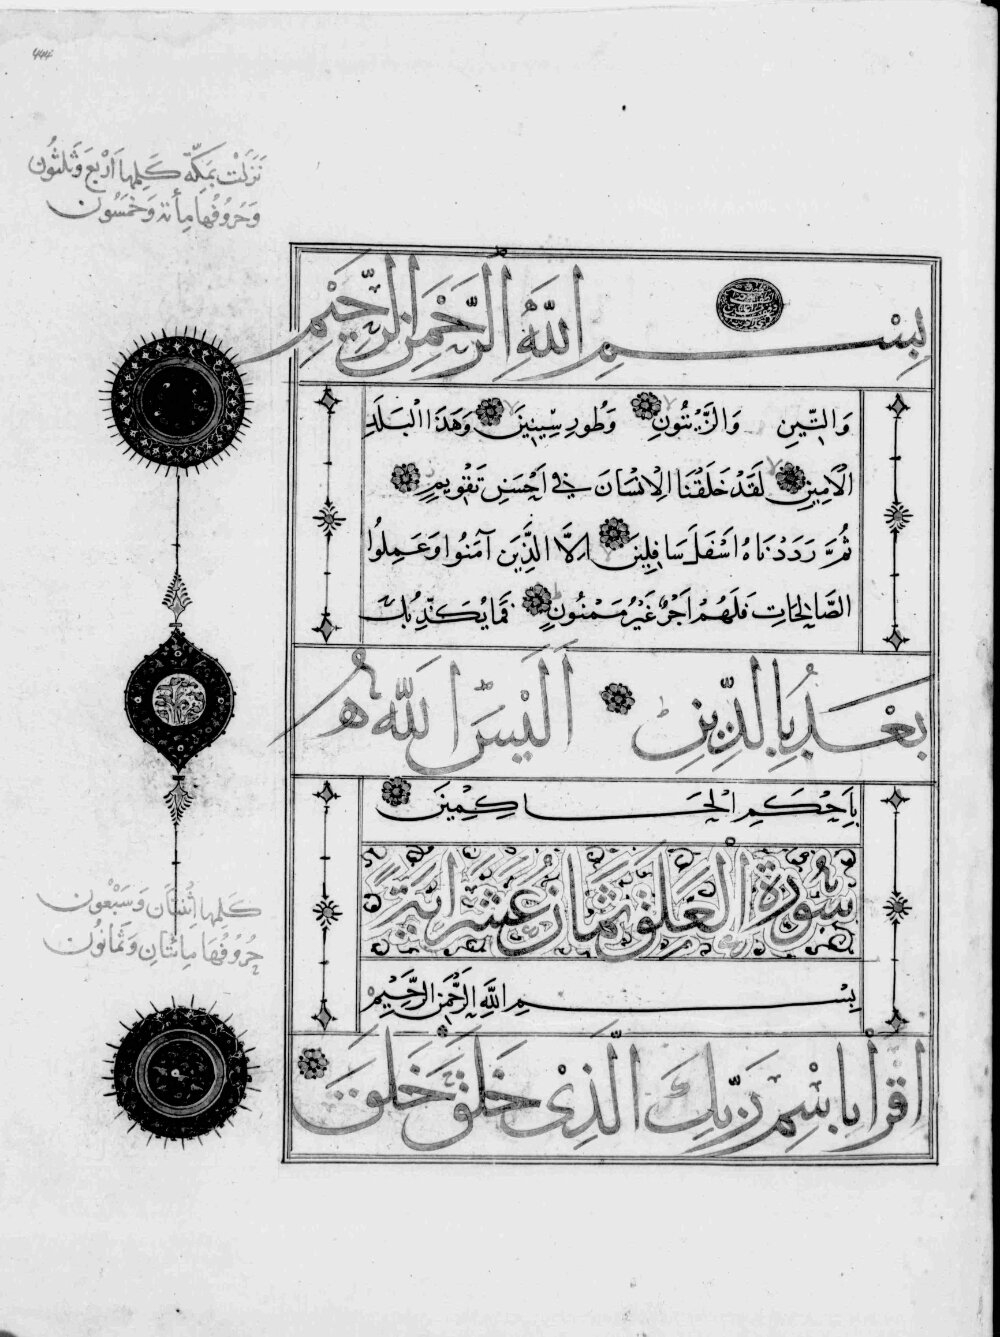 نَزَلَتْ بِمَكَّةَ كَلِمُهَا اَرْبَع وَثَلثُون
وَحُرُوفُهَا مِأَتة وَخَمْسُون
بِسْمِ اللَّهِ الرَّحْمَنِ الرَّحِيْمِ
وَالتِّينِ وَالزَّيْتُونِ وَطُورِ سِينِينَ وَهَذَا الْبَلَدِ
الْاَمِينِ لَقَدْ خَلَقْنَا الْاِنْسَانَ فِي اَحْسَنِ تَقْوِيمٍ
ثُمَّ رَدَدْنَاهُ اَسْفَلَ سَافِلِينَ اِلَّا الَّذِينَ آمَنُوا وَعَمِلُوا
الصَّالِحَاتِ فَلَهُمْ اَجْرٌ غَيْرُ مَمْنُونٍ فَمَا يُكَذِّبُكَ
بَعْدُ بِالدِّينِ اَلَيْسَ اللَّهُ
بِاَحْكَمِ الْحَاكِمِينَ
سُورَةُ الْعَلَقِ ثَمَانَ عَشَرَ ايَةً
كَلِمُهَا اثْنَتَان وَسَبْعُون
حُرُوفُهَا مِائَتَانِ وَثَمَانُون
بِسْمِ اللَّهِ الرَّحْمَنِ الرَّحِيْمِ
اقْرَأْ بِاسْمِ رَبِّكَ الَّذِىْ خَلَقَ خَلَقَ